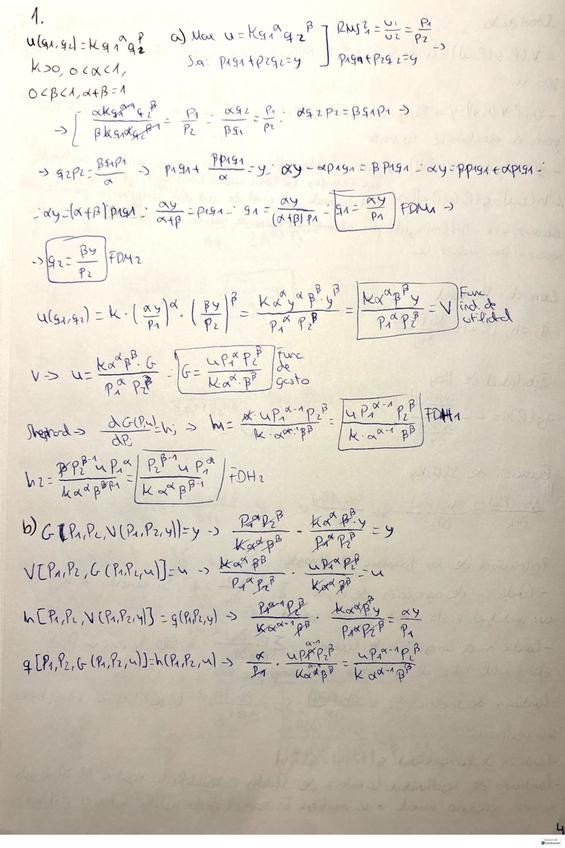 1.
u(q₁,q₂) = Kq₁^α q₂^β
K>0, 0<α<1,
0<β<1, α+β=1
a) Max u = Kq₁^α q₂^β
Sa: p₁q₁+p₂q₂=y
] RMS₁² = u₁/u₂ = P₁/P₂ →
p₁q₁+p₂q₂=y
→ [ αKq₁^(α-1) q₂^β / βKq₁^α q₂^(β-1) = P₁/P₂ ∴ αq₂/βq₁ = P₁/P₂ ∴ αq₂P₂ = βq₁P₁ →
→ q₂P₂ = βq₁P₁/α → P₁q₁ + βP₁q₁/α = y ∴ αy - αP₁q₁ = βP₁q₁ ∴ αy = βP₁q₁ + αP₁q₁ ∴
∴ αy = (α+β)P₁q₁ ∴ αy/(α+β) = P₁q₁ ∴ q₁ = αy/(α+β)P₁ ∴ q₁ = αy/P₁ FDM₁ →
→ q₂ = βy/P₂ FDM₂
u(q₁,q₂) = K·(αy/P₁)^α·(βy/P₂)^β = Kα^α y^α β^β y^β / P₁^α P₂^β = Kα^α β^β y / P₁^α P₂^β = V Func ind. de utilidad
V → u = Kα^α β^β·G / P₁^α P₂^β ∴ G = uP₁^α P₂^β / K·α^α·β^β Func de gasto
→ dG(P,u)/dPᵢ = hᵢ h₁ = α·uP₁^(α-1) P₂^β / K·α^α β^β = uP₁^(α-1) P₂^β / K·α^(α-1) β^β FDH₁
h₂ = βP₂^(β-1) uP₁^α / Kα^α β^β = P₂^(β-1) uP₁^α / Kα^α β^(β-1) FDH₂
b) G[P₁,P₂,V(P₁,P₂,y)]=y → P₁^α P₂^β / Kα^α β^β · Kα^α β^β·y / P₁^α P₂^β = y
V[P₁,P₂,G(P₁,P₂,u)]=u → Kα^α β^β / P₁^α P₂^β · uP₁^α P₂^β / Kα^α β^β = u
h[P₁,P₂,V(P₁,P₂,y)]=q(P₁,P₂,y) → P₁^(α-1) P₂^β / Kα^(α-1) β^β · Kα^α β^β y / P₁^α P₂^β = αy/P₁
q[P₁,P₂,G(P₁,P₂,u)]=h(P₁,P₂,u) → α/P₁ · uP₁^α P₂^β / Kα^α β^β = uP₁^(α-1) P₂^β / Kα^(α-1) β^β
4